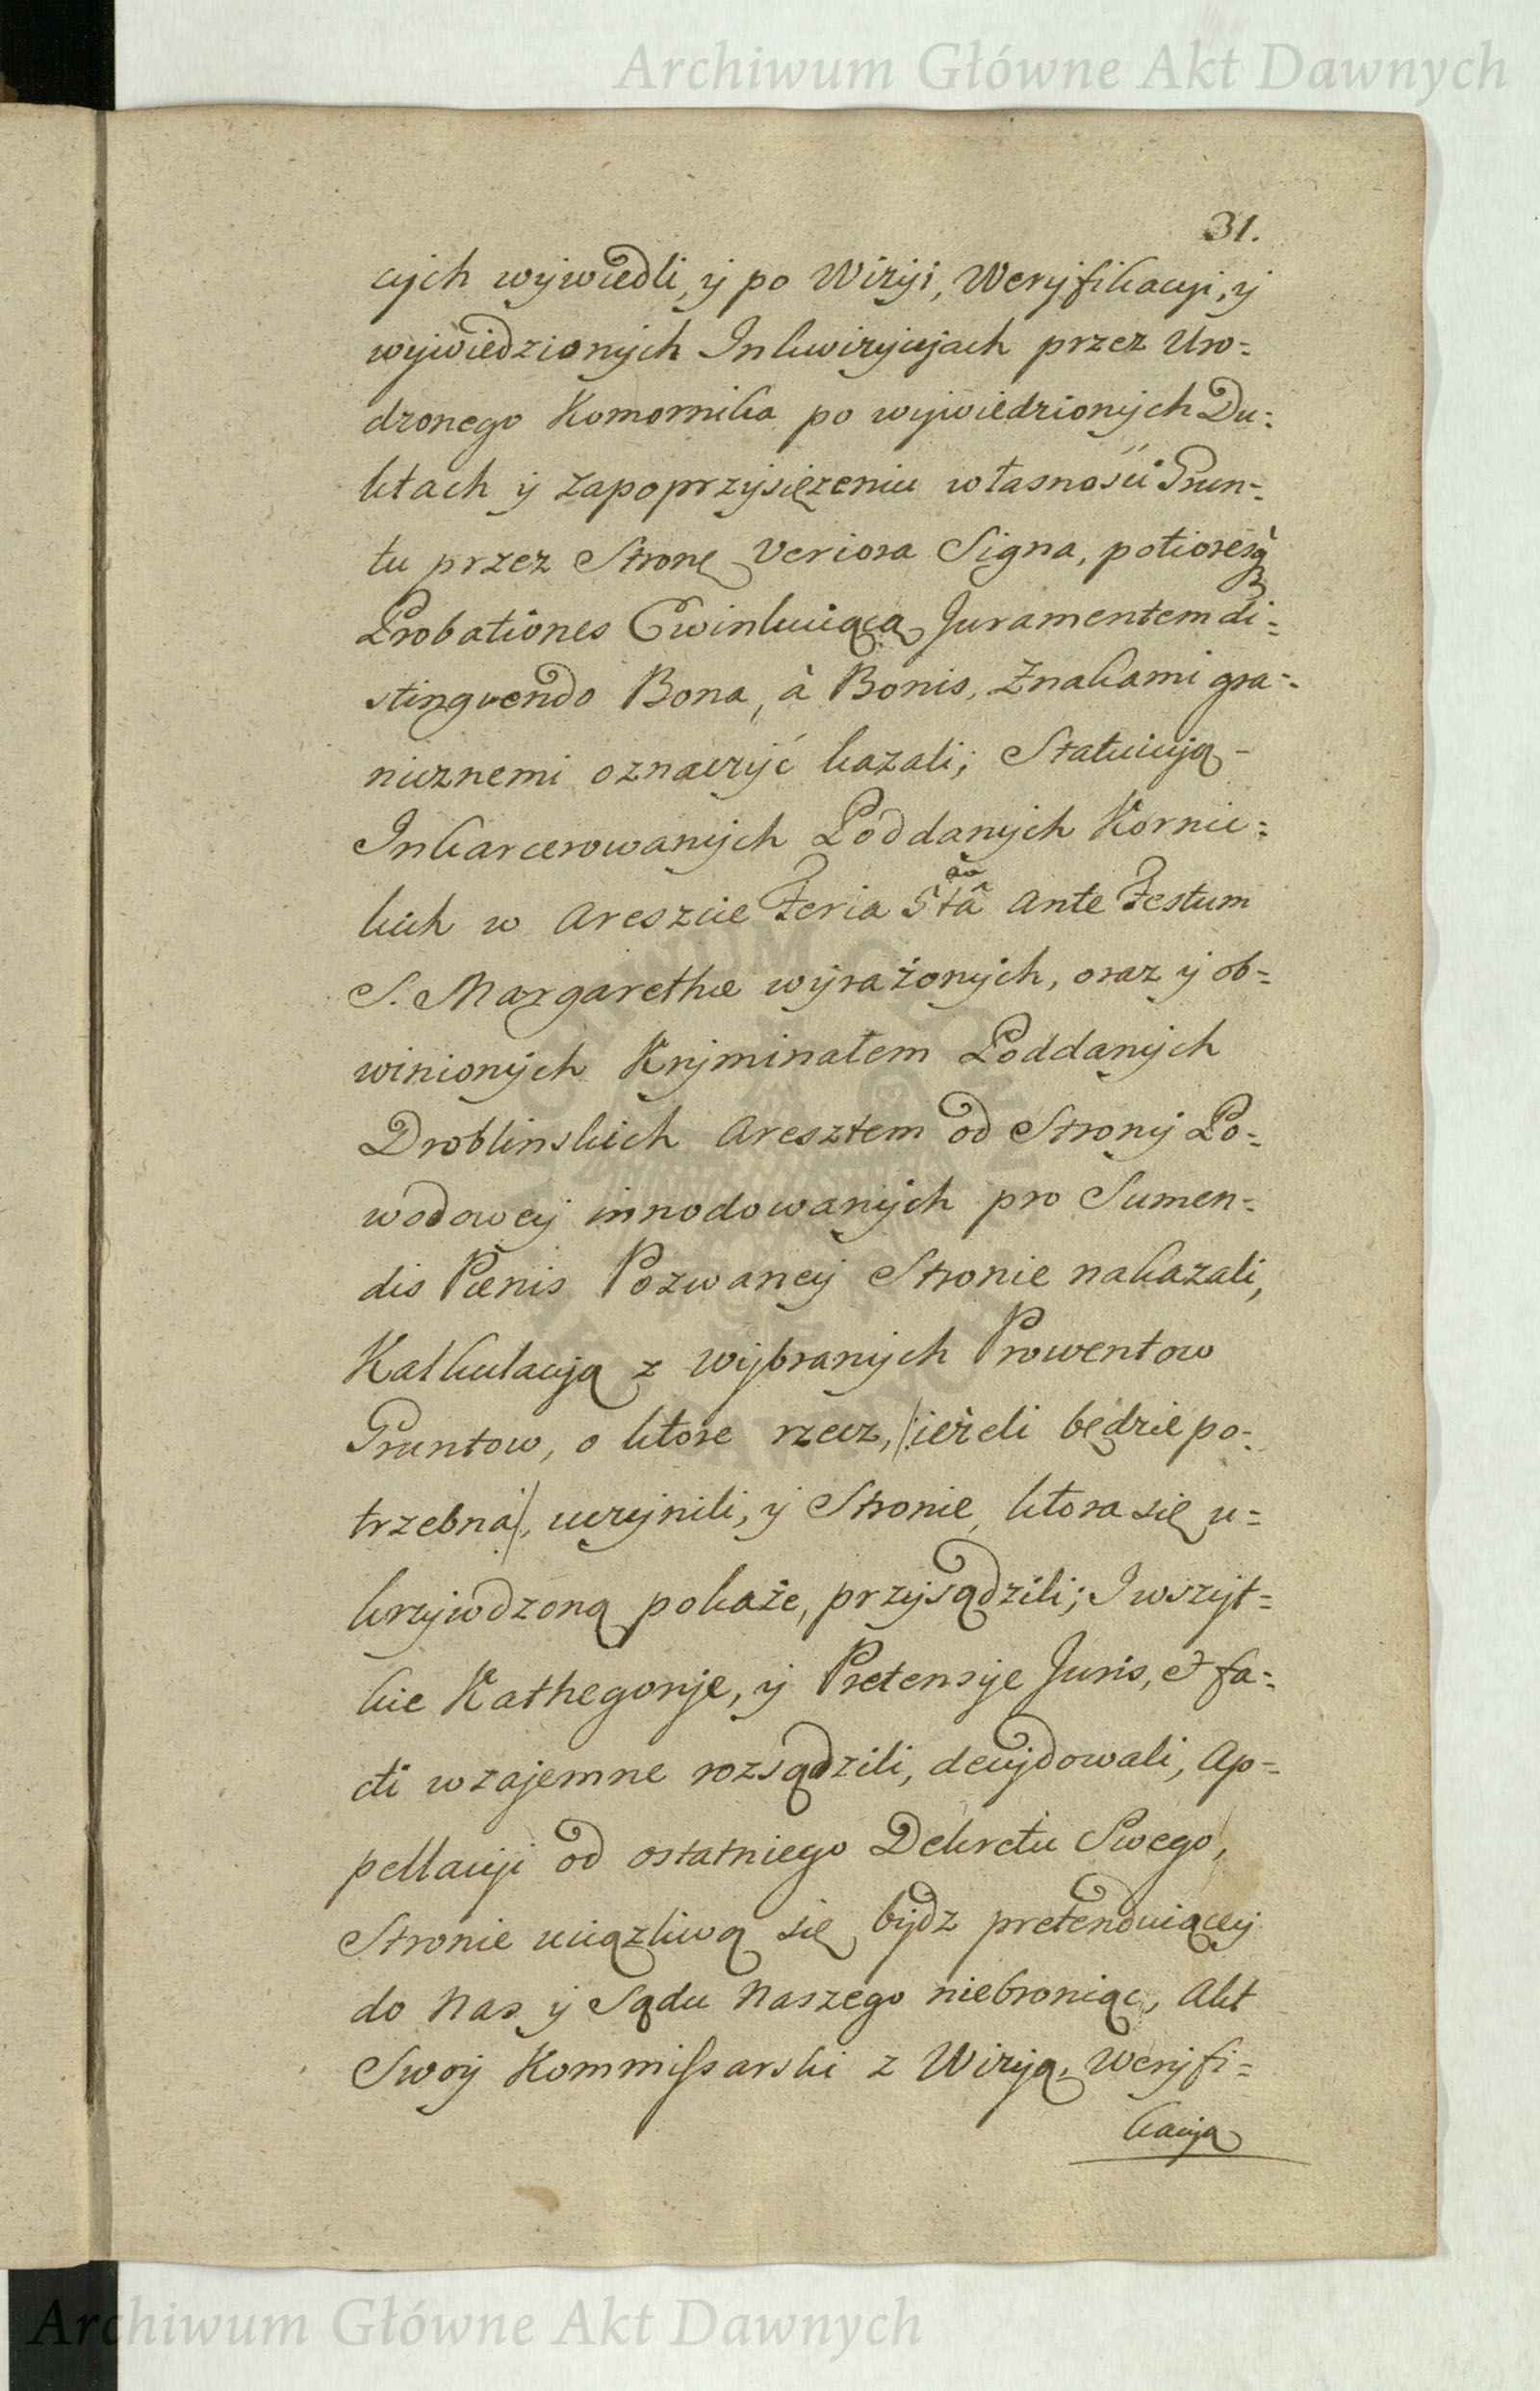 Archiwum Główne Akt Dawnych
31.
cych wywiedli, y po Wizyi, Weryfikacyi, y
wywiedzionych Inkwizycyjach przez Uro=
dzonego Komornika po wywiedzionych Du=
ktach y zapoprzysiężeniu własności Grun=
tu przez Stronę Veriora Signa, potioresq3
Probationes Ewinkuiącą Juramentem di=
stinguendo Bona, à Bonis, Znakami gra=
nicznemi oznaczyć kazali; Statuicyją
Inkarcerowanych Poddanych Kornic=
kich w Areszcie Feria 5tâ ante Festum
S. Margarethæ wyrażonych, oraz y ob=
winionych Kryminałem Poddanych
Droblinskich Aresztem od Strony Po=
wodowey innodowanych pro Sumen=
dis Pœnis Pozwaney Stronie nakazali,
Kalkulacyją z wybranych Prowentow
Gruntow, o ktore rzecz, /:ieżeli będzie po=
trzebna:/, uczynili, y Stronie, ktora się u=
krzywdzoną pokaże, przysądzili; I wszyt=
kie Kathegorye, y Pretensye Juris, et fa=
cti wzajemne rozsądzili, decydowali, Ap=
pellacyi od ostatniego Dekretu Swego,
Stronie uciązliwą się bydz pretenduiącey
do Nas y Sądu Naszego niebroniąc, Akt
Swoy Kommissarski z Wizyą, Weryfi=
kacyą
Archiwum Główne Akt Dawnych